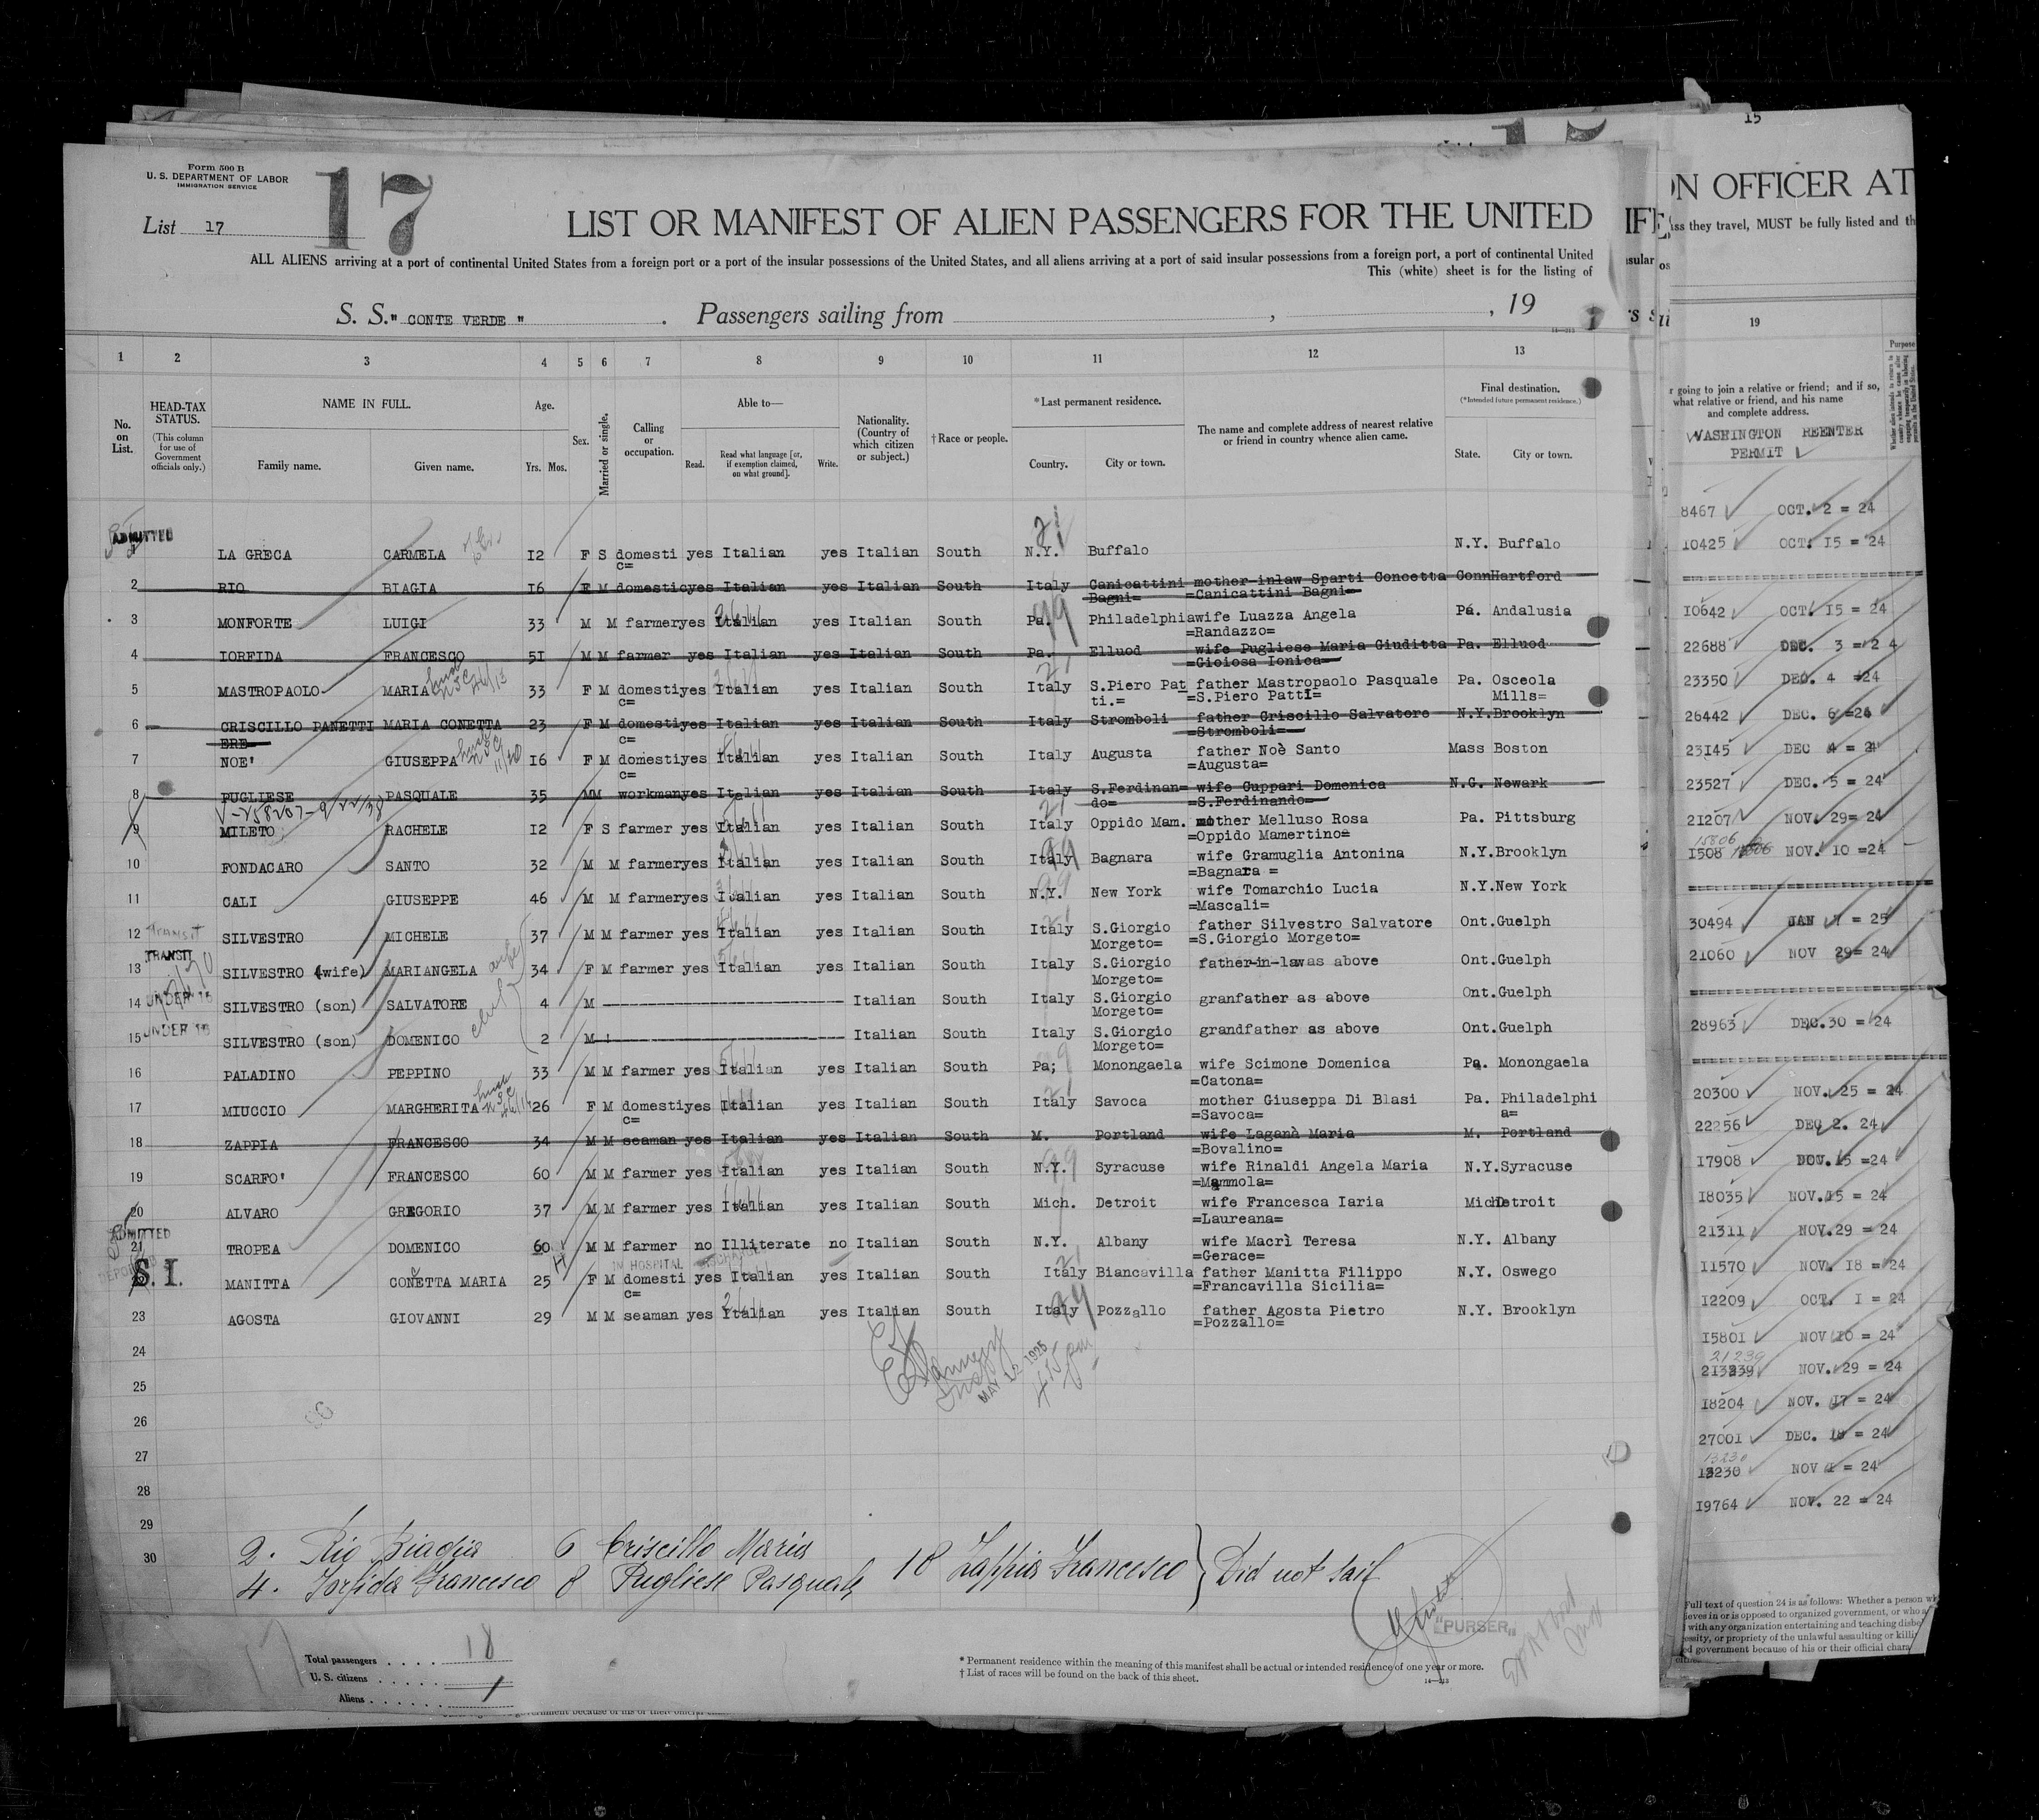 15
Form 500 B
U. S. DEPARTMENT OF LABOR
IMMIGRATION SERVICE
17
List 17
LIST OR MANIFEST OF ALIEN PASSENGERS FOR THE UNITED
ALL ALIENS arriving at a port of continental United States from a foreign port or a port of the insular possessions of the United States, and all aliens arriving at a port of said insular possessions from a foreign port, a port of continental United
This (white) sheet is for the listing of
S. S. " CONTE VERDE " . Passengers sailing from , , 19
1 2 3 4 5 6 7 8 9 10 11 12 13
No. on List.
HEAD-TAX STATUS.
(This column for use of Government officials only.)
NAME IN FULL.
Family name. Given name.
Age.
Yrs. Mos.
Sex.
Married or single.
Calling or occupation.
Able to—
Read. Read what language [or, if exemption claimed, on what ground]. Write.
Nationality. (Country of which citizen or subject.)
† Race or people.
*Last permanent residence.
Country. City or town.
The name and complete address of nearest relative or friend in country whence alien came.
Final destination.
(*Intended future permanent residence.)
State. City or town.
ADMITTED
1 LA GRECA CARMELA 12 F S domesti yes Italian yes Italian South N.Y. Buffalo N.Y. Buffalo
c=
2 RIO BIAGIA 16 F M domestic yes Italian yes Italian South Italy Canicattini mother-inlaw Sparti Concetta Conn Hartford
Bagni= =Canicattini Bagni=
3 MONFORTE LUIGI 33 M M farmer yes Italian yes Italian South Pa. Philadelphia wife Luazza Angela Pa. Andalusia
=Randazzo=
4 IORFIDA FRANCESCO 51 M M farmer yes Italian yes Italian South Pa. Elluod wife Pugliese Maria Giuditta Pa. Elluod
=Gioiosa Ionica=
5 MASTROPAOLO MARIA 33 F M domesti yes Italian yes Italian South Italy S.Piero Pat father Mastropaolo Pasquale Pa. Osceola
c= ti.= =S.Piero Patti= Mills=
6 CRISCILLO PANETTI MARIA CONETTA 23 F M domesti yes Italian yes Italian South Italy Stromboli father Criscillo Salvatore N.Y. Brooklyn
ERE c= =Stromboli=
7 NOE' GIUSEPPA 16 F M domesti yes Italian yes Italian South Italy Augusta father Noè Santo Mass Boston
c= =Augusta=
8 PUGLIESE PASQUALE 35 M M workman yes Italian yes Italian South Italy S.Ferdinan= wife Cuppari Domenica N.G. Newark
do= =S.Ferdinando=
9 MILETO RACHELE 12 F S farmer yes Italian yes Italian South Italy Oppido Mam. mother Melluso Rosa Pa. Pittsburg
=Oppido Mamertino=
10 FONDACARO SANTO 32 M M farmer yes Italian yes Italian South Italy Bagnara wife Gramuglia Antonina N.Y. Brooklyn
=Bagnara =
11 CALI GIUSEPPE 46 M M farmer yes Italian yes Italian South N.Y. New York wife Tomarchio Lucia N.Y. New York
=Mascali=
12 Transit SILVESTRO MICHELE 37 M M farmer yes Italian yes Italian South Italy S.Giorgio father Silvestro Salvatore Ont. Guelph
Morgeto= =S.Giorgio Morgeto=
TRANSIT
13 SILVESTRO (wife) MARIANGELA 34 F M farmer yes Italian yes Italian South Italy S.Giorgio father-in-law as above Ont. Guelph
Morgeto=
14 UNDER 16 SILVESTRO (son) SALVATORE 4 M Italian South Italy S.Giorgio granfather as above Ont. Guelph
Morgeto=
15 UNDER 16 SILVESTRO (son) DOMENICO 2 M Italian South Italy S.Giorgio grandfather as above Ont. Guelph
Morgeto=
16 PALADINO PEPPINO 33 M M farmer yes Italian yes Italian South Pa; Monongaela wife Scimone Domenica Pa. Monongaela
=Catona=
17 MIUCCIO MARGHERITA 26 F M domesti yes Italian yes Italian South Italy Savoca mother Giuseppa Di Blasi Pa. Philadelphi
c= =Savoca= a=
18 ZAPPIA FRANCESCO 34 M M seaman yes Italian yes Italian South M. Portland wife Laganà Maria M. Portland
=Bovalino=
19 SCARFO' FRANCESCO 60 M M farmer yes Italian yes Italian South N.Y. Syracuse wife Rinaldi Angela Maria N.Y. Syracuse
=Mammola=
20 ALVARO GREGORIO 37 M M farmer yes Italian yes Italian South Mich. Detroit wife Francesca Iaria Mich Detroit
=Laureana=
ADMITTED
21 TROPEA DOMENICO 60 M M farmer no Illiterate no Italian South N.Y. Albany wife Macrì Teresa N.Y. Albany
=Gerace=
IN HOSPITAL
S. I. MANITTA CONETTA MARIA 25 F M domesti yes Italian yes Italian South Italy Biancavilla father Manitta Filippo N.Y. Oswego
c= =Francavilla Sicilia=
23 AGOSTA GIOVANNI 29 M M seaman yes Italian yes Italian South Italy Pozzallo father Agosta Pietro N.Y. Brooklyn
=Pozzallo=
24
MAY 12 1925
25
26
27
28
29
30
2. Rio Biagia 6 Criscillo Maria
4. Iorfida Francesco 8 Pugliese Pasquale 18 Zappia Francesco } Did not sail
"PURSER"
Total passengers . . . . 18
U. S. citizens . . . . . 1
Aliens . . . . . .
* Permanent residence within the meaning of this manifest shall be actual or intended residence of one year or more.
† List of races will be found on the back of this sheet.
14—213
ON OFFICER AT
ss they travel, MUST be fully listed and th
19
r going to join a relative or friend; and if so,
what relative or friend, and his name
and complete address.
Purpose
WASHINGTON REENTER
PERMIT
8467 OCT. 2 = 24
10425 OCT. 15 = 24
10642 OCT. 15 = 24
22688 DEC. 3 = 2 4
23350 DEC. 4 =24
26442 DEC. 6 =24
23145 DEC 4 = 24
23527 DEC. 5 = 24
21207 NOV. 29= 24
15806
1508 NOV. 10 =24
30494 JAN 7 = 25
21060 NOV 29= 24
28963 DEC.30 = 24
20300 NOV. 25 = 24
22256 DEC 2. 24
17908 NOV.15 =24
18035 NOV.15 = 24
21311 NOV.29 = 24
11570 NOV. 18 = 24
12209 OCT. 1 = 24
15801 NOV 10 = 24
21239
213239 NOV. 29 = 24
18204 NOV. 17 = 24
27001 DEC. 18 = 24
13230
13230 NOV 1 = 24
19764 NOV. 22 = 24
Full text of question 24 is as follows: Whether a person wh
ieves in or is opposed to organized government, or who a
with any organization entertaining and teaching disbe
essity, or propriety of the unlawful assaulting or killi
ed government because of his or their official chara